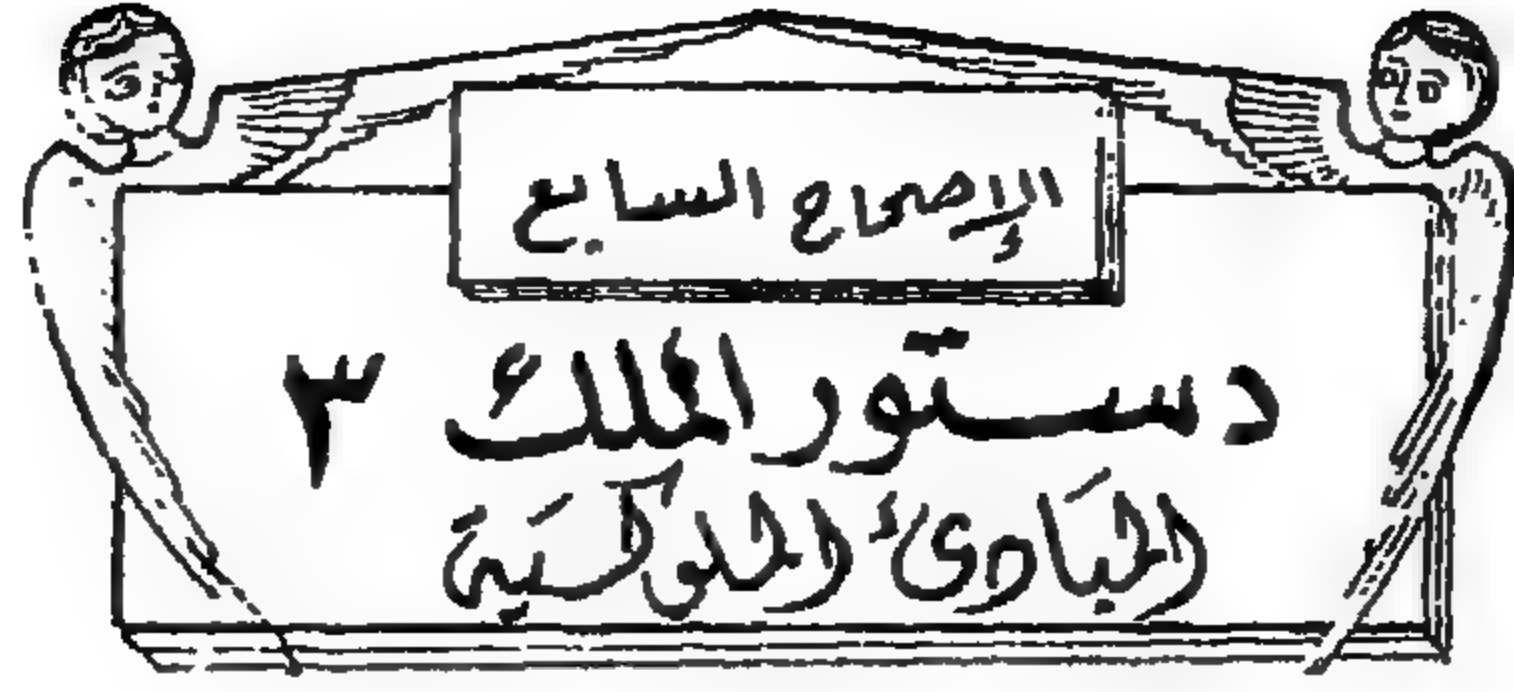 الإصحاح السابع
دستور الملك ٣
المبَادئ الملوكسَية